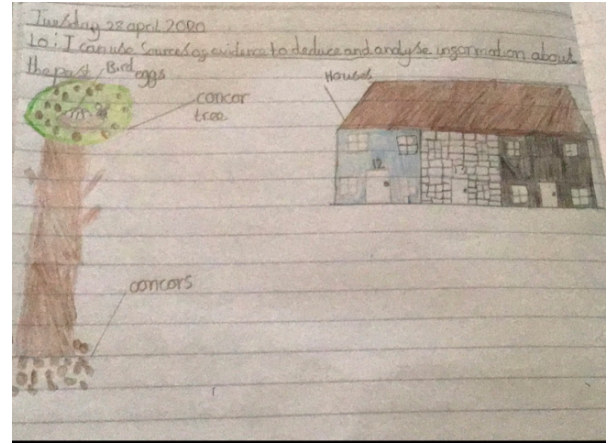 Tuesday 28 april 2020
Lo: I can use Sources as evidence to deduce and analyse information about
the past
Bird
eggs
concor
tree
Houses
12
13
concors